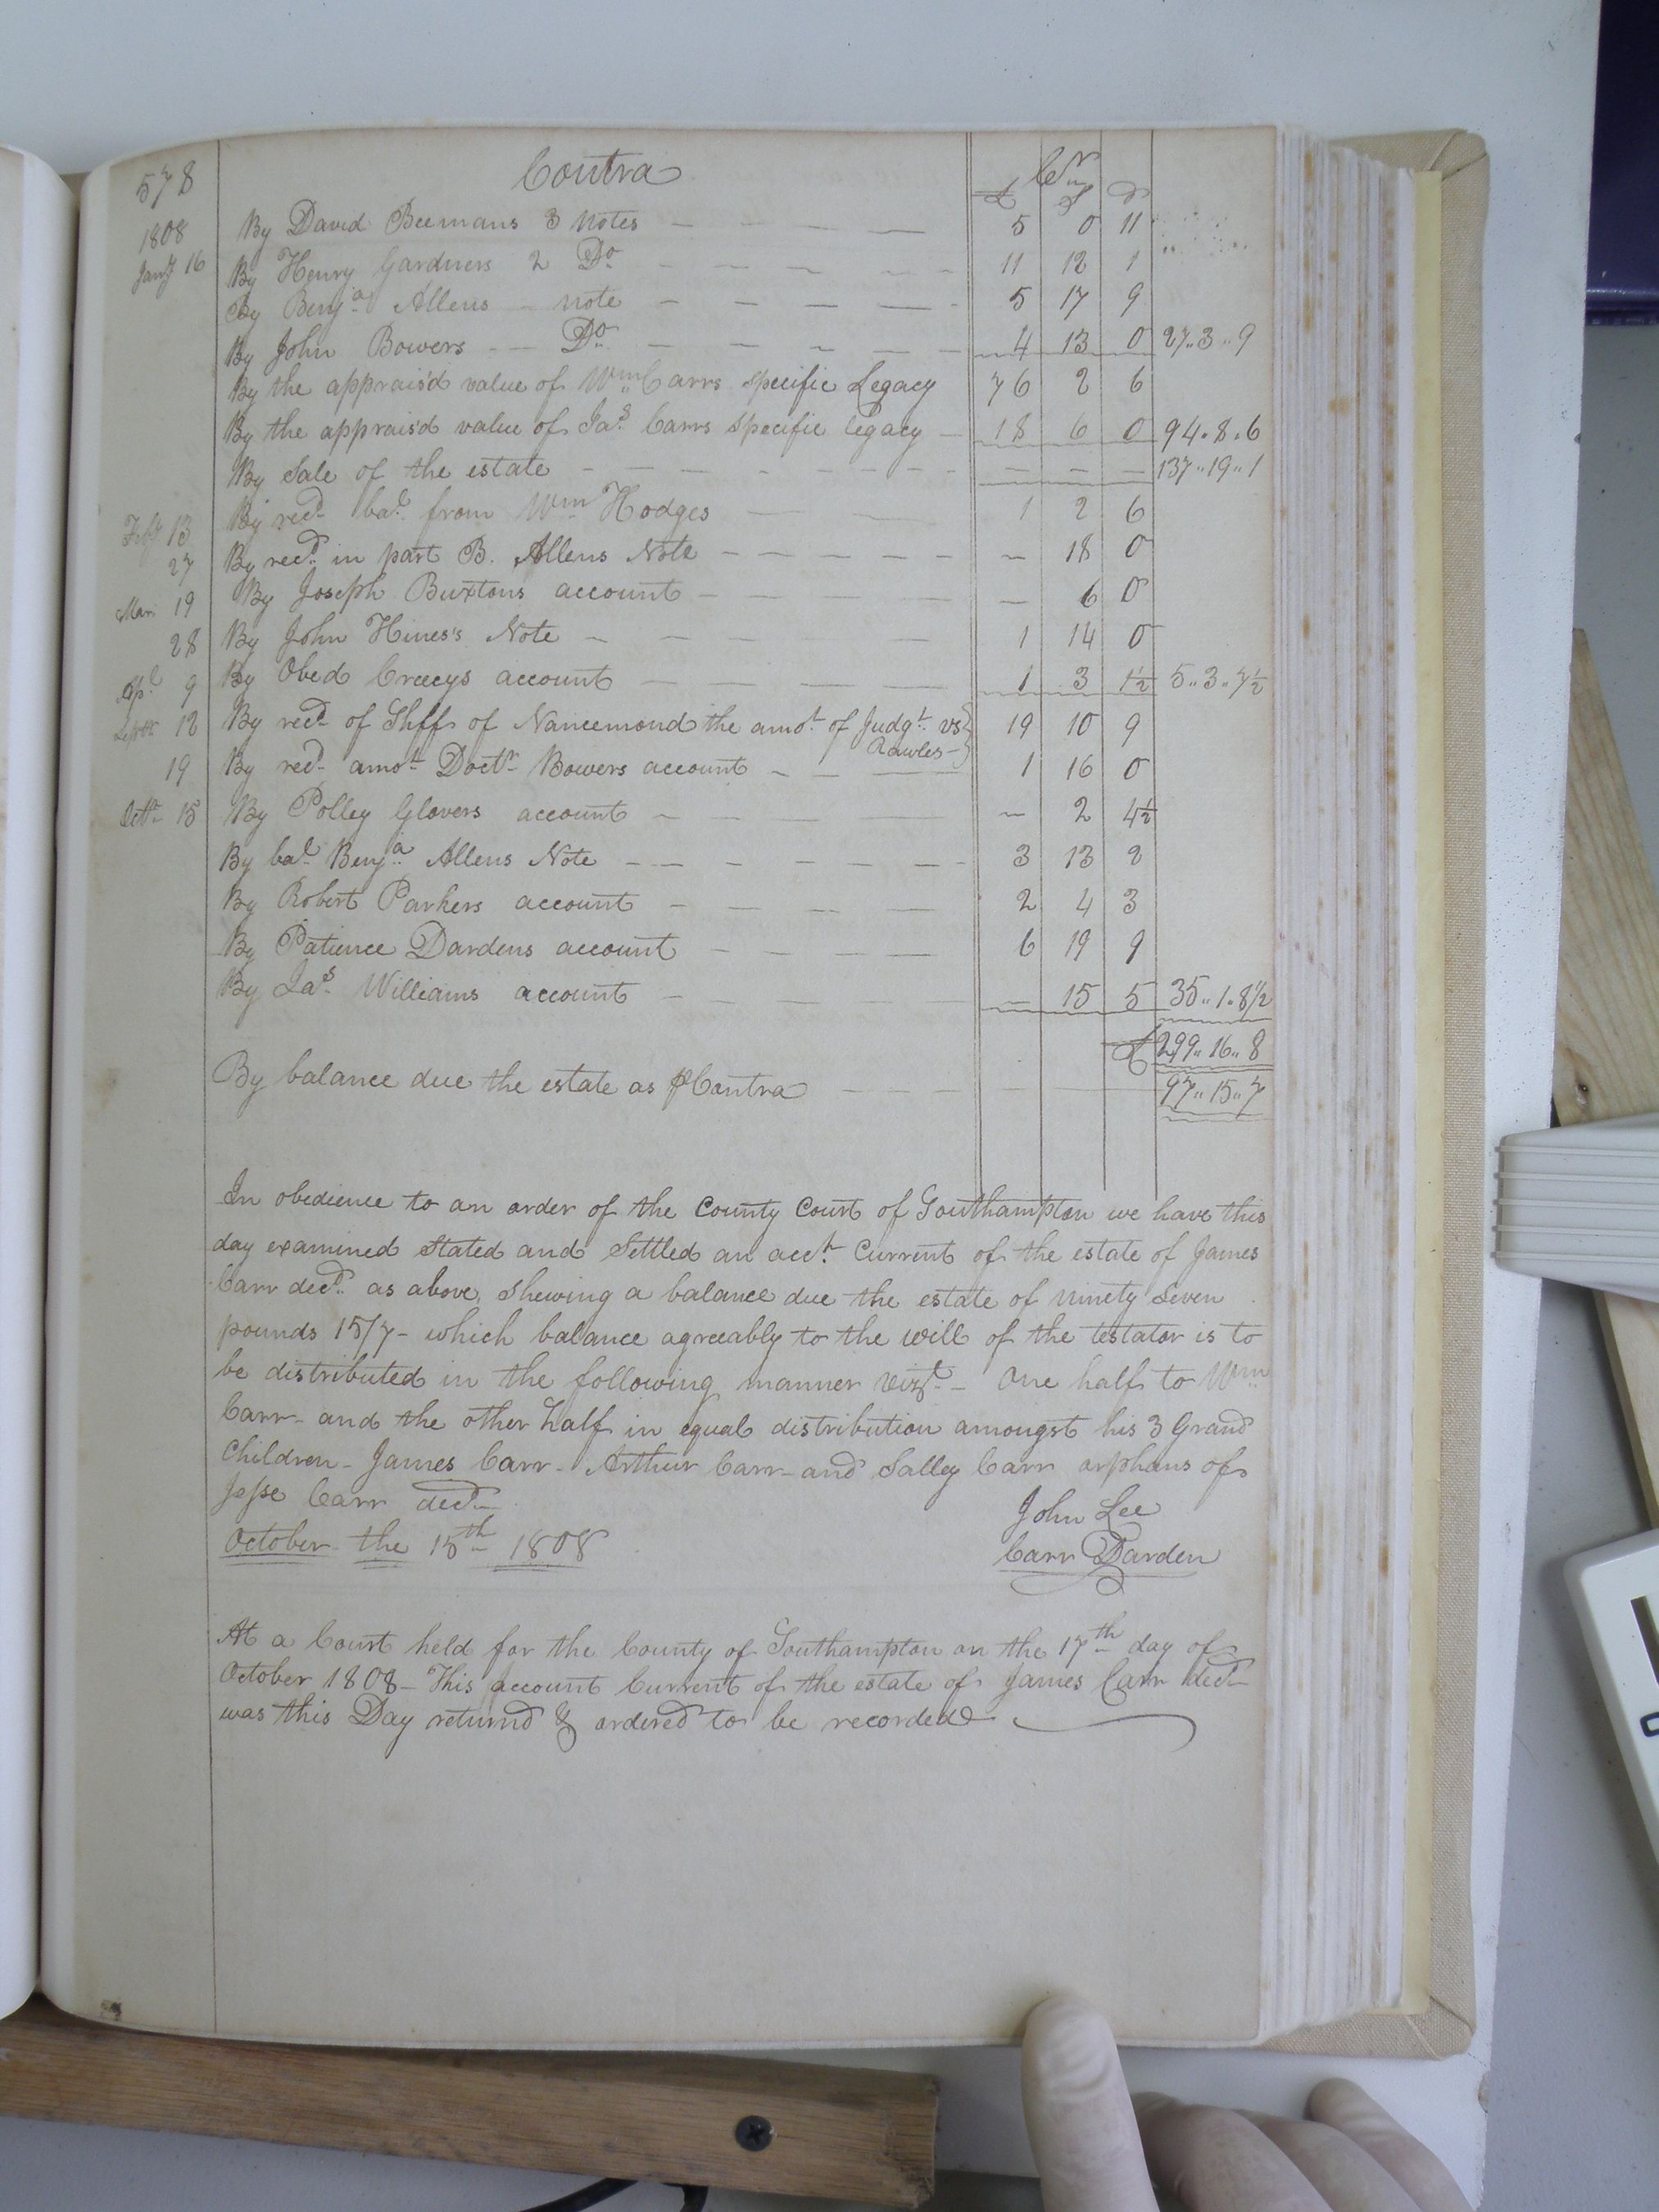 578 Contra Cr
£ S D
1808 By David Beemans 3 Notes — — — — 5 0 11
Jany 16 By Henry Gardners 2 Do — — — — 11 12 1
By Benja Allens – note — — — — 5 17 9
By John Bowers — Do — — — — 4 13 0 27..3..9
By the apprais'd value of Wm Carrs specific Legacy 76 2 6
By the apprais'd value of Jas Carrs specific legacy — 18 6 0 94..8..6
By Sale of the estate — — — — — — — 137..19..1
Feby 13 By recd bal from Wm Hodges — — 1 2 6
27 By recd in part B. Allens Note — — — — — 18 0
Mar 19 By Joseph Buxtons account — — — — 6 0
28 By John Hines's Note — — — — 1 14 0
Apl 9 By Obed Creecys account — — — 1 3 1½ 5..3..7½
Septr 12 By recd of Shff of Nancemond the amot of Judgt vs} 19 10 9
Rawles—
19 By recd amot Doctr Bowers account — — 1 16 0
Octr 15 By Polley Glovers account — — — — 2 4½
By bal Benja Allens Note — — — — — 3 13 2
By Robert Parkers account — — — — 2 4 3
By Patience Dardens account — — — — 6 19 9
By Jas Williams account — — — — — 15 5 35..1..8½
£ 299..16..8
By balance due the estate as ⅌ Contra — — — 97..15..7
In obedience to an order of the County Court of Southampton we have this
day examined Stated and Settled an acct Current of the estate of James
Carr decd as above, shewing a balance due the estate of ninety Seven
pounds 15/7– which balance agreeably to the will of the testator is to
be distributed in the following manner vizt – One half to Wm
Carr– and the other half in equal distribution amongst his 3 Grand
Children – James Carr – Arthur Carr – and Salley Carr orphans of
Jesse Carr decd
John Lee
October the 15th 1808
Carr Darden
At a Court held for the County of Southampton on the 17th day of
October 1808 – This account Current of the estate of James Carr decd
was this Day returnd & ordered to be recorded